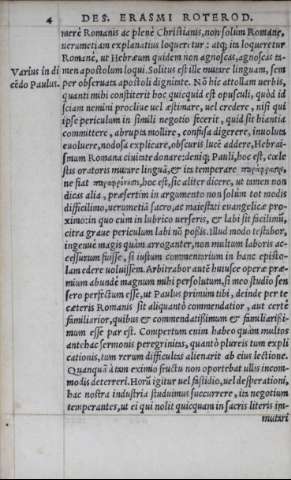 4 DES. ERASMI ROTEROD.
merè Romanis ac plenè Christianis, non solùm Romanè,
uerumetiam explanatius loqueretur: atq; ita loqueretur
Romanè, ut Hebræum quidem non agnoscas, agnoscas ta-
Varius in di men apostolum loqui. Solitus est ille mutare linguam, sem
cẽdo Paulus. per obseruata apostoli dignitate. Nõ hic attollam uerbis,
quanti mihi constiterit hoc quicquid est opusculi, quòd id
sciam nemini procliue uel æstimare, uel credere, nisi qui
ipse periculum in simili negotio fecerit, quid sit hiantia
committere, abrupta mollire, confusa digerere, inuoluta
euoluere, nodosa explicare, obscuris lucẽ addere, Hebrais-
mum Romana ciuitate donare: deniq; Pauli, hoc est, cœle
stis oratoris mutare linguã, & ita temperare παράφρασιν,
ne fiat παραφρόνησις, hoc est, sic aliter dicere, ut tamen non
dicas alia, præsertim in argumento non solùm tot modis
difficilimo, uerumetiã sacro, ac maiestati euangelicæ pro-
ximo: in quo cùm in lubrico uerseris, & labi sit facilimũ,
citra graue periculum labi nõ possis. Illud modò testabor,
ingenuè magis quàm arroganter, non multum laboris ac-
cessurum fuisse, si iustum commentarium in hanc episto-
lam edere uoluissem. Arbitrabor autẽ huiusce operæ præ-
mium abunde magnum mihi persolutum, si meo studio sen
sero perfectum esse, ut Paulus primum tibi, deinde per te
cæteris Romanis sit aliquantò commendatior, aut certè
familiarior, quibus & commendatissimum & familiarissi-
mum esse par est. Compertum enim habeo quàm multos
antehac sermonis peregrinitas, quantò plureis tum expli
cationis, tum rerum difficultas alienarit ab eius lectione.
Quanquã à tam eximio fructu non oportebat ullis incom-
modis deterreri. Horũ igitur uel fastidio, uel desperationi,
hac nostra industria studuimus succurrere, ita negotium
temperantes, ut ei qui nolit quicquam in sacris literis im-
mutari